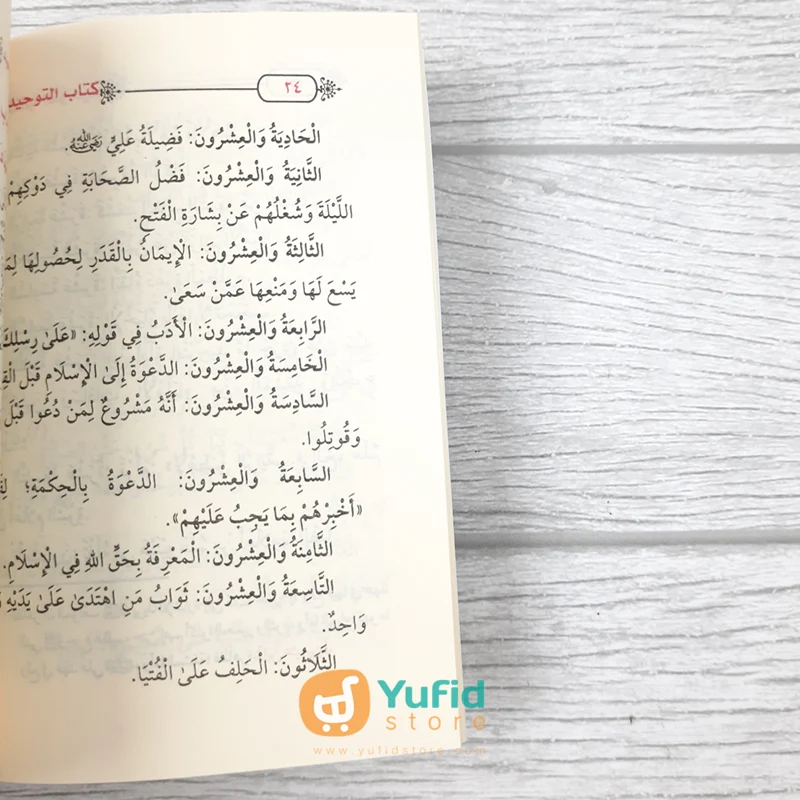 كتاب التوحيد
٢٤
الْحَادِيَةُ وَالْعِشْرُونَ: فَضِيلَةُ عَلِيٍّ رَضِيَ اللهُ عَنْهُ.
الثَّانِيَةُ وَالْعِشْرُونَ: فَضْلُ الصَّحَابَةِ فِي دَوْكِهِمْ
اللَّيْلَةَ وَشُغْلُهُمْ عَنْ بِشَارَةِ الْفَتْحِ.
الثَّالِثَةُ وَالْعِشْرُونَ: الْإِيمَانُ بِالْقَدَرِ لِحُصُولِهَا
يَسْعَ لَهَا وَمَنْعِهَا عَمَّنْ سَعَىٰ.
الرَّابِعَةُ وَالْعِشْرُونَ: الْأَدَبُ فِي قَوْلِهِ: «عَلَىٰ رِسْلِكَ
الْخَامِسَةُ وَالْعِشْرُونَ: الدَّعْوَةُ إِلَىٰ الْإِسْلَامِ قَبْلَ
السَّادِسَةُ وَالْعِشْرُونَ: أَنَّهُ مَشْرُوعٌ لِمَنْ دُعُوا قَبْلَ
وَقُوتِلُوا.
السَّابِعَةُ وَالْعِشْرُونَ: الدَّعْوَةُ بِالْحِكْمَةِ؛
«أَخْبِرْهُمْ بِمَا يَجِبُ عَلَيْهِمْ».
الثَّامِنَةُ وَالْعِشْرُونَ: الْمَعْرِفَةُ بِحَقِّ اللهِ فِي الْإِسْلَامِ.
التَّاسِعَةُ وَالْعِشْرُونَ: ثَوَابُ مَنِ اهْتَدَىٰ عَلَىٰ يَدَيْهِ
وَاحِدٌ.
الثَّلَاثُونَ: الْحَلِفُ عَلَىٰ الْفُتْيَا.
Yufid
store
www.yufidstore.com